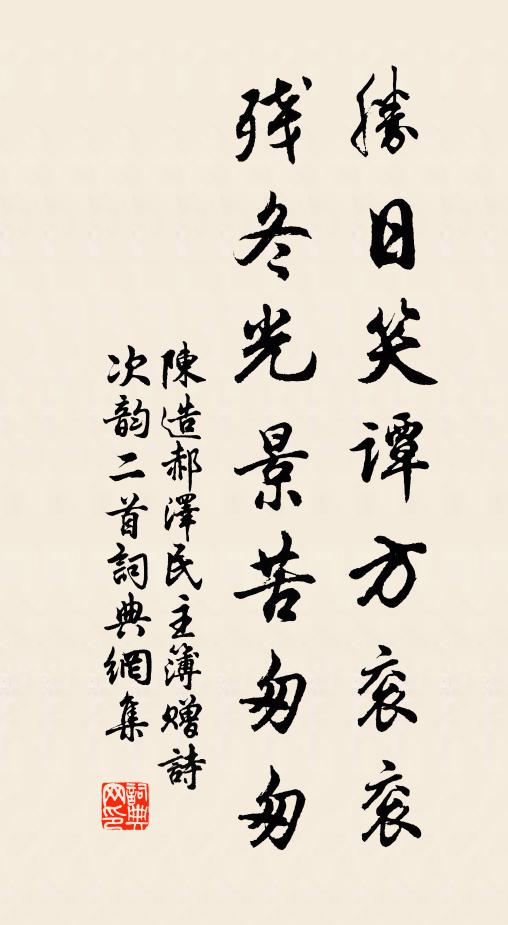 勝日笑譚方衮衮
残冬光景苦匆匆
陳造郝澤民主簿贈詩
次韵二首詞典網集
詞典网印